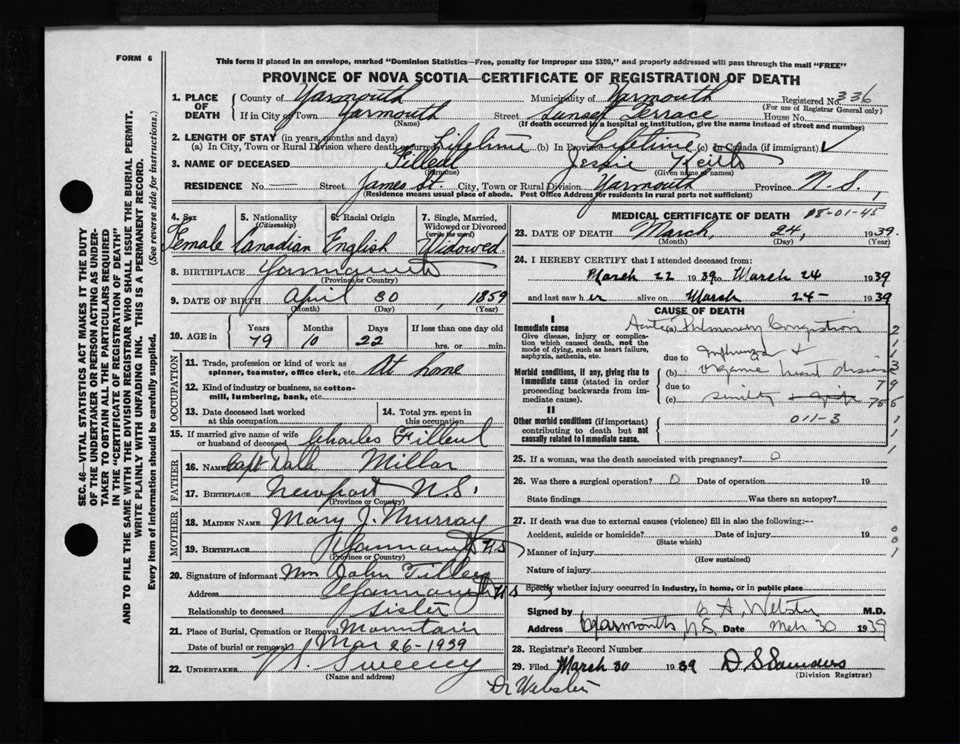 FORM 6
This form if placed in an envelope, marked "Dominion Statistics—Free, penalty for improper use $300," and properly addressed will pass through the mail "FREE"
PROVINCE OF NOVA SCOTIA—CERTIFICATE OF REGISTRATION OF DEATH
1. PLACE OF DEATH { County of Yarmouth Municipality of Yarmouth Registered No. 336
(For use of Registrar General only)
If in City or Town Yarmouth (Name) Street Sunset Terrace House No.
(If death occurred in a hospital or institution, give the name instead of street and number)
2. LENGTH OF STAY (in years, months and days)
(a) In City, Town or Rural Division where death occurred Lifetime (b) In Province Lifetime (c) In Canada (if immigrant) ✓
3. NAME OF DECEASED Filleul (Surname) Jessie Keith (Given name or names)
RESIDENCE No. — Street James St. City, Town or Rural Division Yarmouth Province N.S.
(Residence means usual place of abode. Post Office Address for residents in rural parts not sufficient)
4. Sex Female
5. Nationality (Citizenship) Canadian
6. Racial Origin English
7. Single, Married, Widowed or Divorced (write the word) Widowed
8. BIRTHPLACE Yarmouth
(Province or Country)
9. DATE OF BIRTH April 30, 1859
(Month) (Day) (Year)
10. AGE in { Years 79 Months 10 Days 22 If less than one day old
hrs. or min.
OCCUPATION
11. Trade, profession or kind of work as spinner, teamster, office clerk, etc. At home
12. Kind of industry or business, as cotton-mill, lumbering, bank, etc.
13. Date deceased last worked at this occupation
14. Total yrs. spent in this occupation
15. If married give name of wife or husband of deceased Charles Filleul
FATHER
16. NAME Capt Millar
17. BIRTHPLACE Newport N.S.
(Province or Country)
MOTHER
18. MAIDEN NAME Mary J. Murray
19. BIRTHPLACE Yarmouth N.S.
(Province or Country)
20. Signature of informant John
Address Yarmouth N.S.
Relationship to deceased Sister
21. Place of Burial, Cremation or Removal Mountain
Date of burial or removal Mar 26-1939
22. UNDERTAKER Sweeney
(Name and address)
Dr Webster
MEDICAL CERTIFICATE OF DEATH
23. DATE OF DEATH March, 24, 1939.
(Month) (Day) (Year)
24. I HEREBY CERTIFY that I attended deceased from:
March 22 1939 to March 24 1939
and last saw her alive on March 24 - 1939
CAUSE OF DEATH
I
Immediate cause
Give disease, injury or complication which caused death, not the mode of dying, such as heart failure, asphyxia, asthenia, etc.
(a) Acute Pulmonary Congestion
due to
Morbid conditions, if any, giving rise to immediate cause (stated in order proceeding backwards from immediate cause).
(b)
due to
(c)
II
Other morbid conditions (if important) contributing to death but not causally related to immediate cause.
011-3
25. If a woman, was the death associated with pregnancy? 0
26. Was there a surgical operation? 0 Date of operation 19
State findings Was there an autopsy?
27. If death was due to external causes (violence) fill in also the following:—
Accident, suicide or homicide? Date of injury 19
(State which)
Manner of injury
(How sustained)
Nature of injury
Specify whether injury occurred in industry, in home, or in public place
Signed by A. Webster M.D.
Address Yarmouth, N.S. Date Mch 30 1939
28. Registrar's Record Number
29. Filed March 30 1939 D S Saunders
(Division Registrar)
SEC. 46—VITAL STATISTICS ACT MAKES IT THE DUTY OF THE UNDERTAKER OR PERSON ACTING AS UNDERTAKER TO OBTAIN ALL THE PARTICULARS REQUIRED IN THE "CERTIFICATE OF REGISTRATION OF DEATH"
AND TO FILE THE SAME WITH THE DIVISION REGISTRAR WHO SHALL ISSUE THE BURIAL PERMIT.
WRITE PLAINLY WITH UNFADING INK. THIS IS A PERMANENT RECORD.
Every item of information should be carefully supplied. (See reverse side for instructions.)